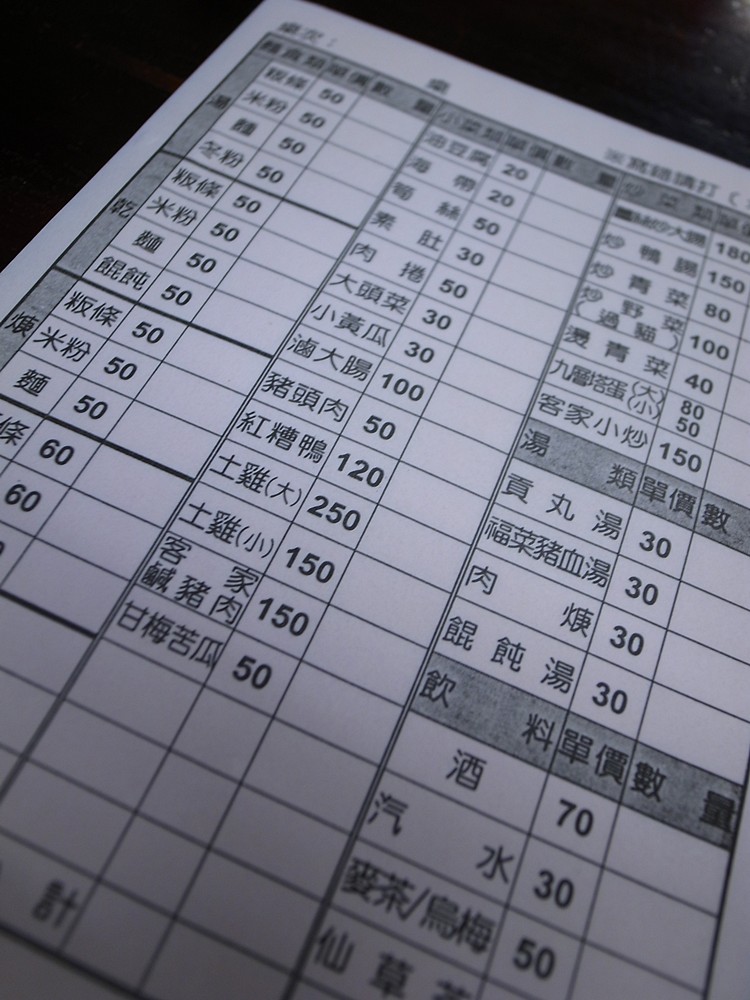 桌次： 桌
※寫錯請打（
麵食類 單價 數量
湯
粄條 50
米粉 50
麵 50
冬粉 50
乾
粄條 50
米粉 50
麵 50
餛飩 50
焿
粄條 50
米粉 50
麵 50
條 60
60
小菜類 單價 數量
油豆腐 20
海帶 20
筍絲 50
素肚 30
肉捲 50
大頭菜 30
小黃瓜 30
滷大腸 100
豬頭肉 50
紅糟鴨 120
土雞(大) 250
土雞(小) 150
客家
鹹豬肉 150
甘梅苦瓜 50
計
炒菜類 單價
炒大腸 180
炒鴨腸 150
炒青菜 80
炒野菜
(過貓) 100
燙青菜 40
九層塔蛋(大) 80
(小) 50
客家小炒 150
湯類 單價 數
貢丸湯 30
福菜豬血湯 30
肉焿 30
餛飩湯 30
飲料 單價 數量
酒 70
汽水 30
麥茶/烏梅 50
仙草茶